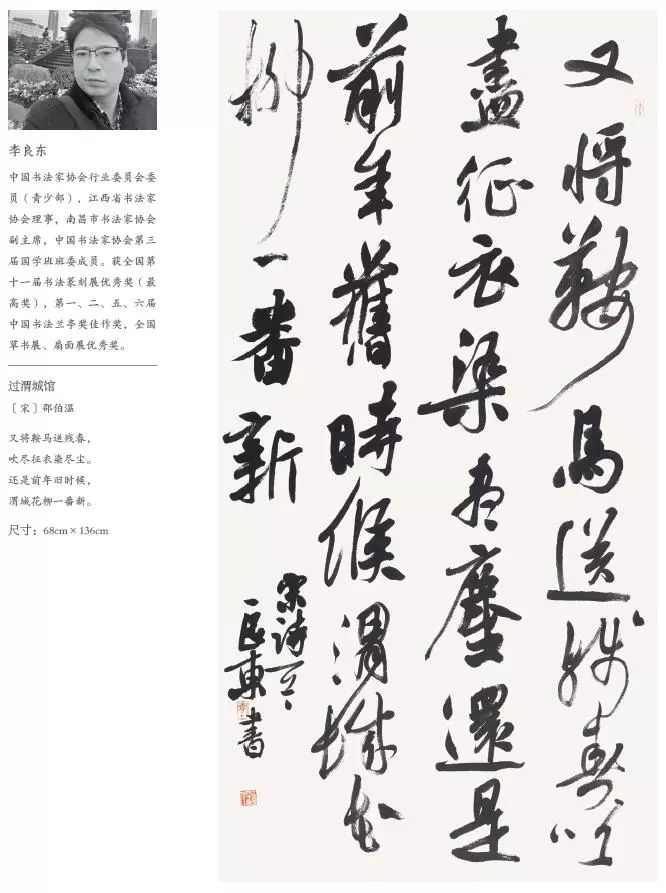 李良东
中国书法家协会行业委员会委
员（青少部），江西省书法家
协会理事，南昌市书法家协会
副主席，中国书法家协会第三
届国学班班委成员。获全国第
十一届书法篆刻展优秀奖（最
高奖），第一、二、五、六届
中国书法兰亭奖佳作奖，全国
草书展、扇面展优秀奖。
过渭城馆
［宋］邵伯温
又将鞍马送残春，
吹尽征衣染尽尘。
还是前年旧时候，
渭城花柳一番新。
尺寸：68cm×136cm
又将鞍馬送残春吹
盡征衣染尽塵還是
前年舊時候渭城花
柳一番新
宋詩一首
良東書